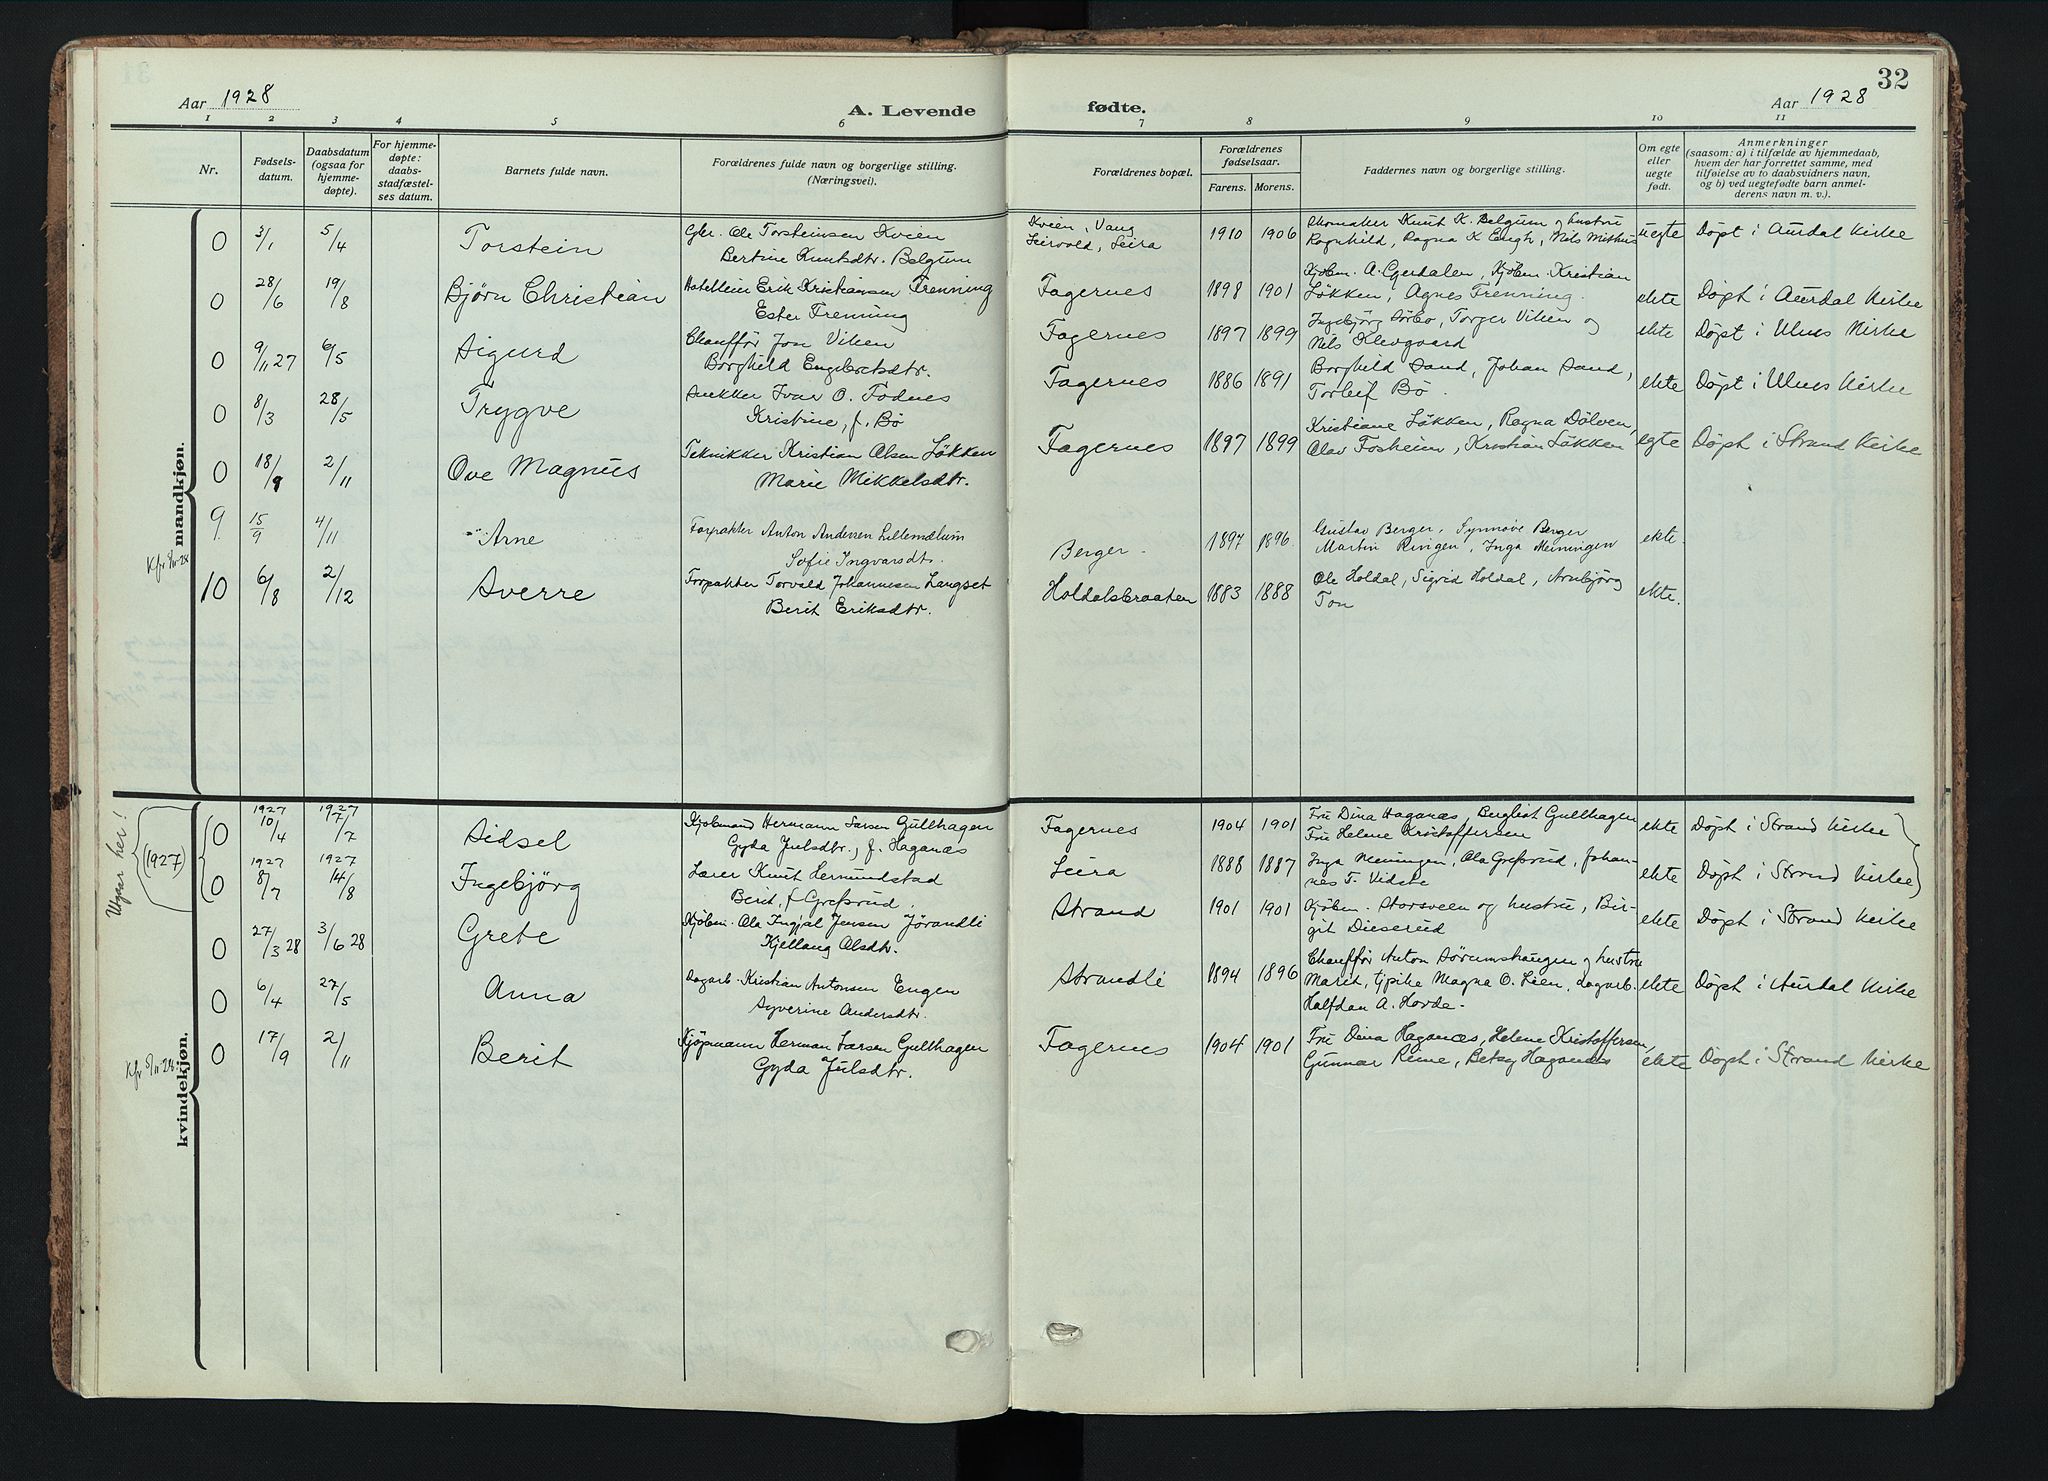 Aar 1928
A. Levende fødte.
32
Aar 1928
1 2 3 4 5 6 7 8 9 10 11
Nr.
Fødsels-
datum.
Daabsdatum
(ogsaa for
hjemme-
døpte).
For hjemme-
døpte:
daabs-
stadfæstel-
ses datum.
Barnets fulde navn.
Forældrenes fulde navn og borgerlige stilling.
(Næringsvei).
Forældrenes bopæl.
Forældrenes
fødselsaar.
Farens. Morens.
Faddernes navn og borgerlige stilling.
Om egte
eller
uegte
født.
Anmerkninger
(saasom: a) i tilfælde av hjemmedaab,
hvem der har forrettet samme, med
tilføielse av to daabsvidners navn,
og b) ved uegtefødte barn anmel-
derens navn m. v.).
mandkjøn.
0 3/1 5/4 Torstein Gbr. Ole Torsteinsen Kvien
Bertine Knutsdtr. Belgum
Kvien, Vang
Leirvold, Leira
1910 1906 Skomaker Knut K. Belgum og hustru
Ragnhild, Ragna K Engh, Nils Mithus
uegte Døpt i Aurdal Kirke
0 28/6 19/8 Bjørn Christian Hotelleier Erik Kristiansen Frenning
Ester Frenning
Fagernes 1898 1901 Kjøbm. A. Egerdalen, Kjøbm. Kristian
Løkken, Agnes Frenning.
ekte Døpt i Aurdal Kirke
0 9/11 27 6/5 Sigurd Chauffør Jon Viken
Borghild Engebretsdtr.
Fagernes 1897 1899 Ingebjørg Sørbo, Torger Viken og
Nils Klevgaard
ekte Døpt i Ulnes Kirke
0 8/3 28/5 Trygve Snekker Ivar O. Fodnes
Kristine, f. Bø
Fagernes 1886 1891 Borghild Sand, Johan Sand,
Torleif Bø.
ekte Døpt i Ulnes Kirke
0 18/9 2/11 Ove Magnus Teknikker Kristian Olsen Løkken
Marie Mikkelsdtr.
Fagernes 1897 1899 Kristiane Løkken, Ragna Dølven,
Olav Fosheim, Kristian Løkken
egte Døpt i Strand Kirke
9. 15/9 4/11 Arne Forpakter Anton Andersen Lillemælum
Sofie Ingvarsdt.
Berger. 1897 1896 Gustav Berger, Synnøve Berger
Martin Ringen, Inga Meiningen
ekte.
10 6/8 2/12 Sverre Forpakter Torvald Johannesen Langset
Berit Eriksdtr.
Holdalsbraaten 1883 1888 Ole Holdal, Sigrid Holdal, Arnbjørg
Ton
ekte.
kvindekjøn.
Utgaar her!
(1927)
0 1927 10/4 1927 7/7 Sidsel Kjøbmand Hermann Larsen Gullhagen
Gyda Julsdtr., f. Haganæs
Fagernes 1904 1901 Fru Dina Haganæs, Bergliot Gullhagen
Fru Helene Kristoffersen
ekte Døpt i Strand Kirke
0 1927 8/7 1927 14/8 Ingebjörg Lærer Knut Lermundstad
Berit, f Grefsrud.
Leira 1888 1887 Inga Meningen, Ola Grefsrud, Johan-
nes T.
ekte Døpt i Strand Kirke
0 27/3 28 3/6 28 Grete Kjøbm. Ola Ingjal Jensen Jørandli
Kjellaug Olsdtr.
Strand 1901 1901 Kjøbm. Storsveen og hustru, Bir-
git Dieserud
ekte Døpt i Strand Kirke
0 6/4 27/5 Anna Dagarb. Kristian Antonsen Engen
Syverine Andersdtr.
Strandli 1894 1896 Chauffør Anton Sørumshaugen og hustru
Marit, tjpike Magna O. Lien, Dagarb.
Halfdan A. Hovde.
ekte Døpt i Aurdal Kirke
0 17/9 2/11 Berit Kjøpmann Herman Larsen Gullhagen
Gyda Julsdtr.
Fagernes 1904 1901 Fru Dina Haganæs, Helene Kristoffersen,
Gunnar Reme, Betsy Haganæs
ekte Døpt i Strand Kirke